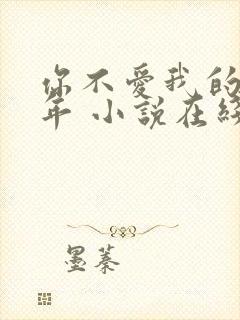 你不愛我的
年 小說在
墨蓁